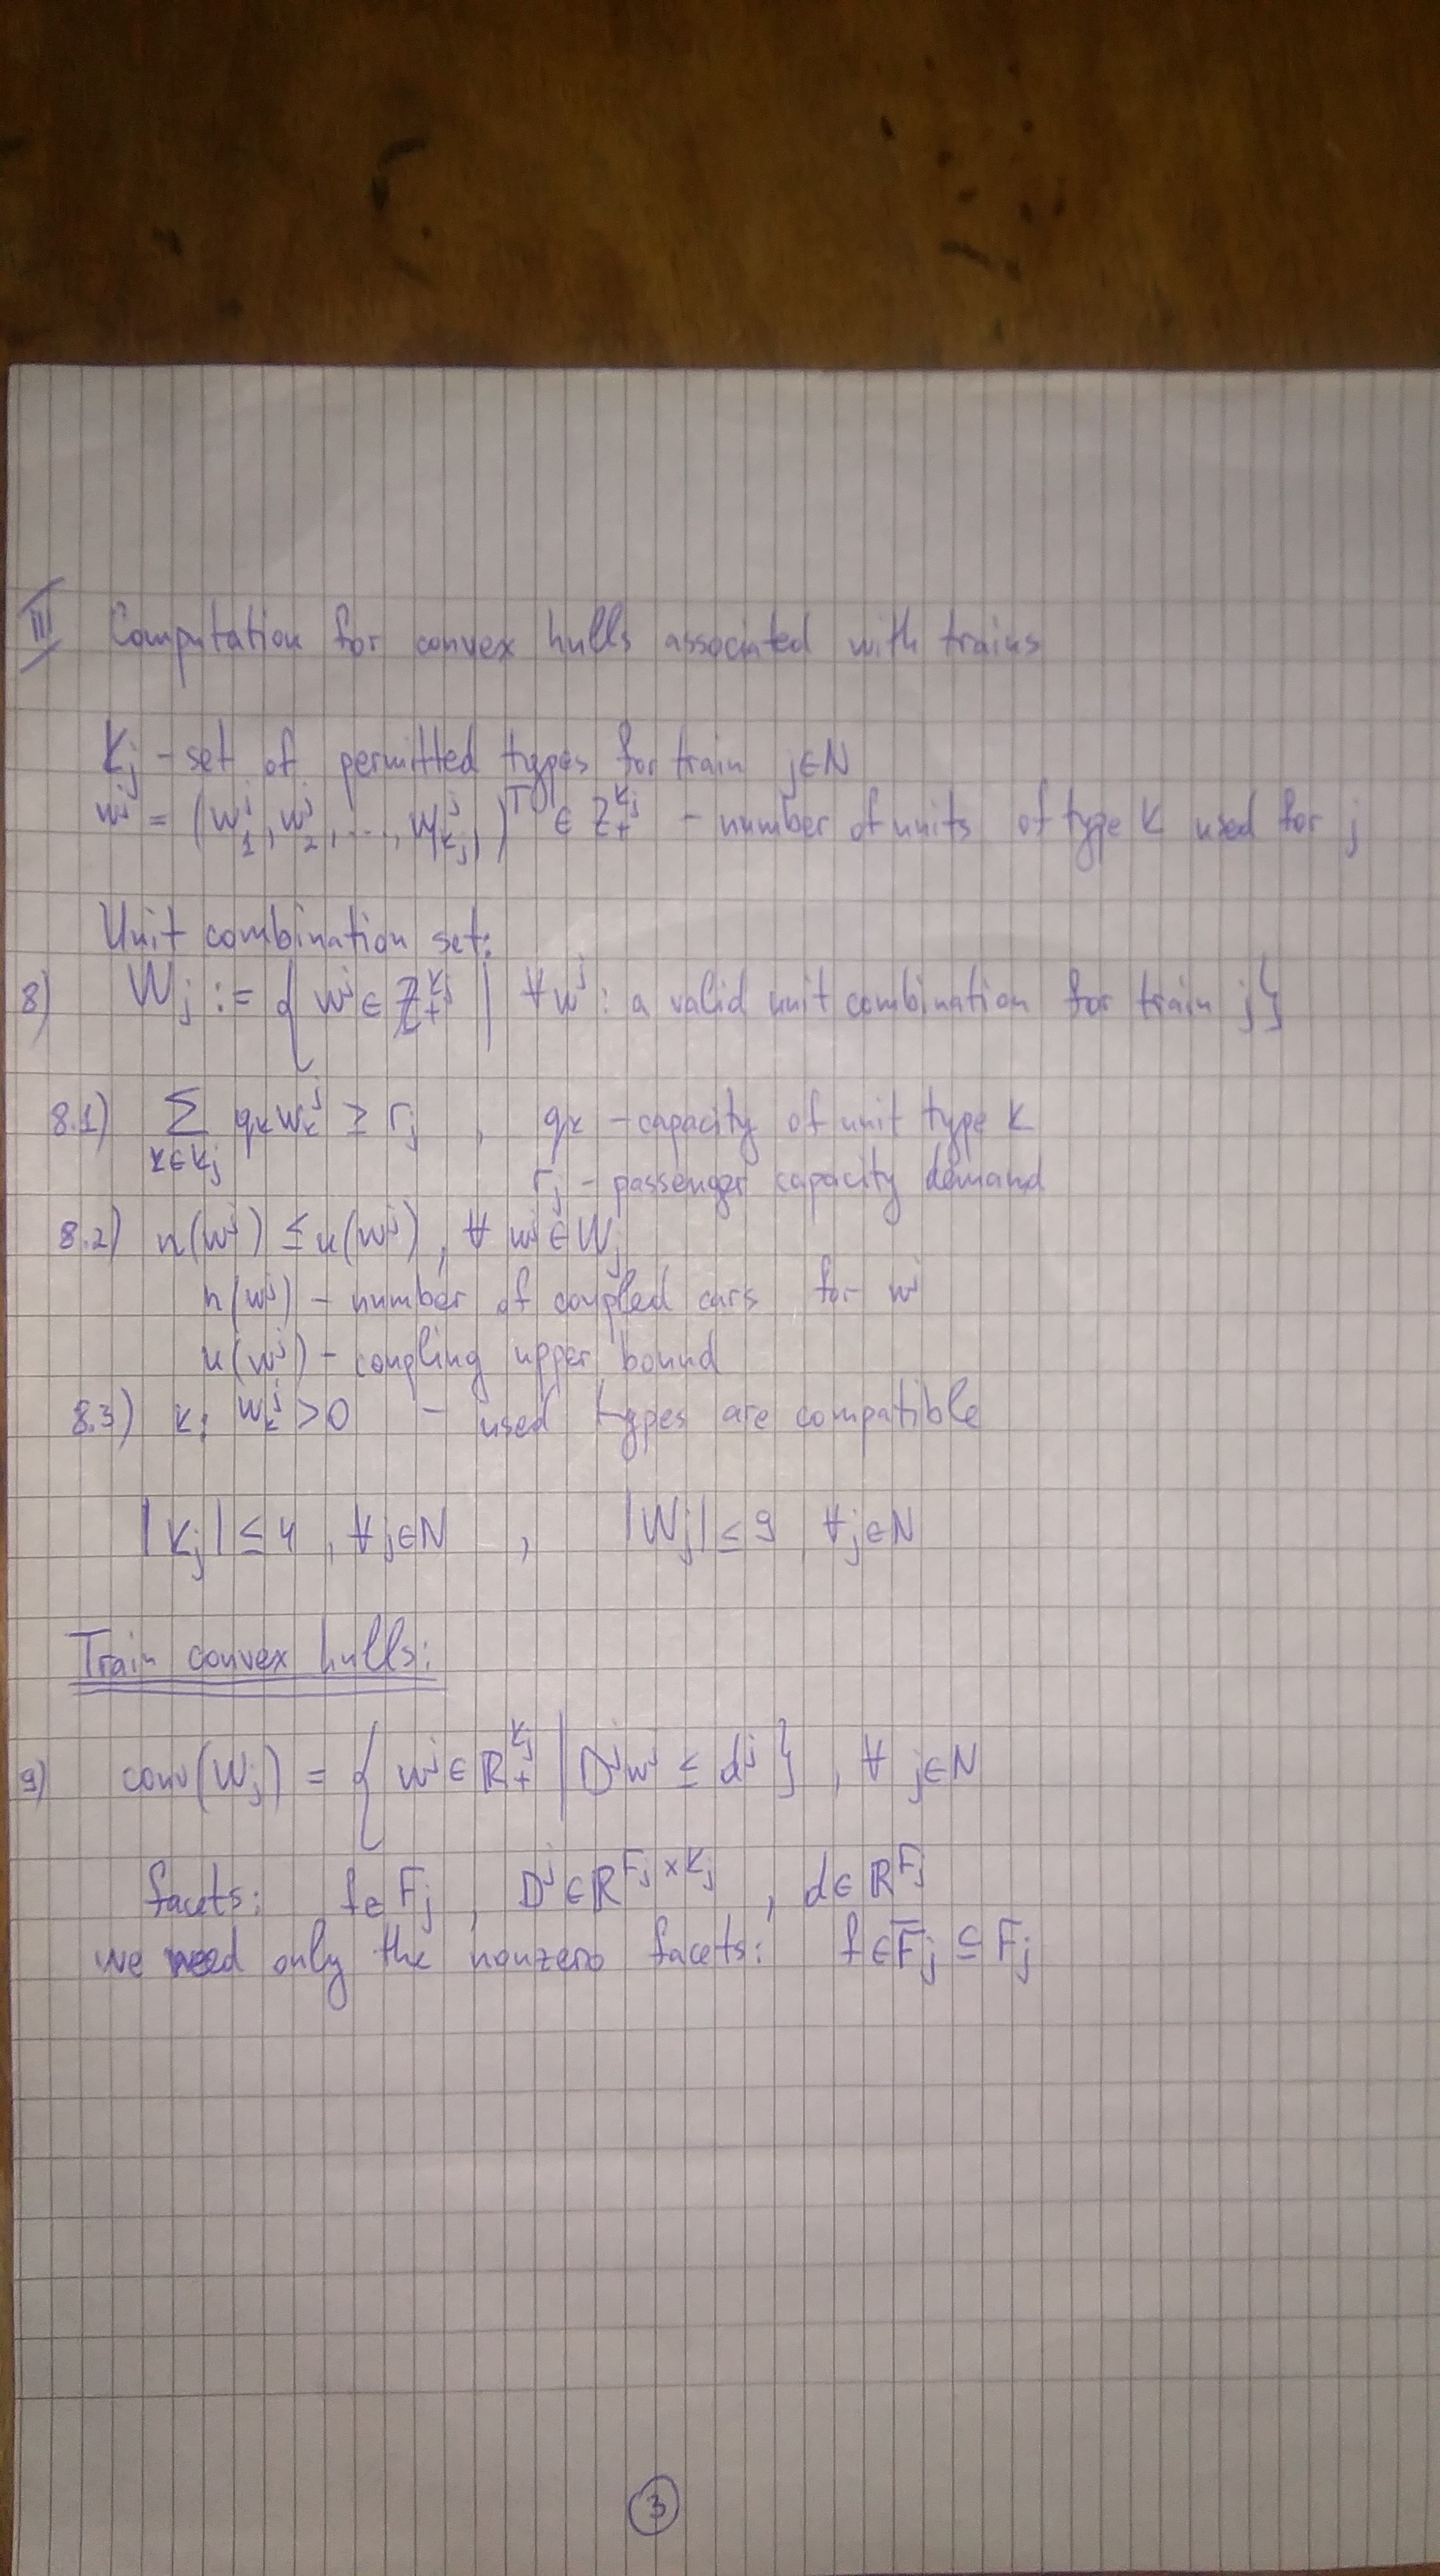 III Computation for convex hulls associated with trains
K_j - set of permitted types for train j∈N
w^j = (w_1^j, w_2^j, ..., w_{K_j}^j)^T ∈ Z_+^{K_j} - number of units of type k used for j
Unit combination set:
8) W_j := { w^j ∈ Z_+^{K_j} | ∀w^j : a valid unit combination for train j}
8.1) ∑_{k∈K_j} q_k w_k^j ≥ r_j , q_k - capacity of unit type k
r_j - passenger capacity demand
8.2) n(w^j) ≤ u(w^j), ∀ w^j ∈ W_j
n(w^j) - number of coupled cars for w^j
u(w^j) - coupling upper bound
8.3) k: w_k^j > 0 - used types are compatible
|K_j| ≤ 4 , ∀j∈N , |W_j| ≤ 9 , ∀j∈N
Train convex hulls:
9) conv(W_j) = { w^j ∈ R_+^{K_j} | D^j w^j ≤ d^j } , ∀ j∈N
facets: f∈F_j , D^j ∈ R^{F_j×K_j} , d∈R^{F_j}
we need only the nonzero facets: f∈F̅_j ⊆ F_j
3